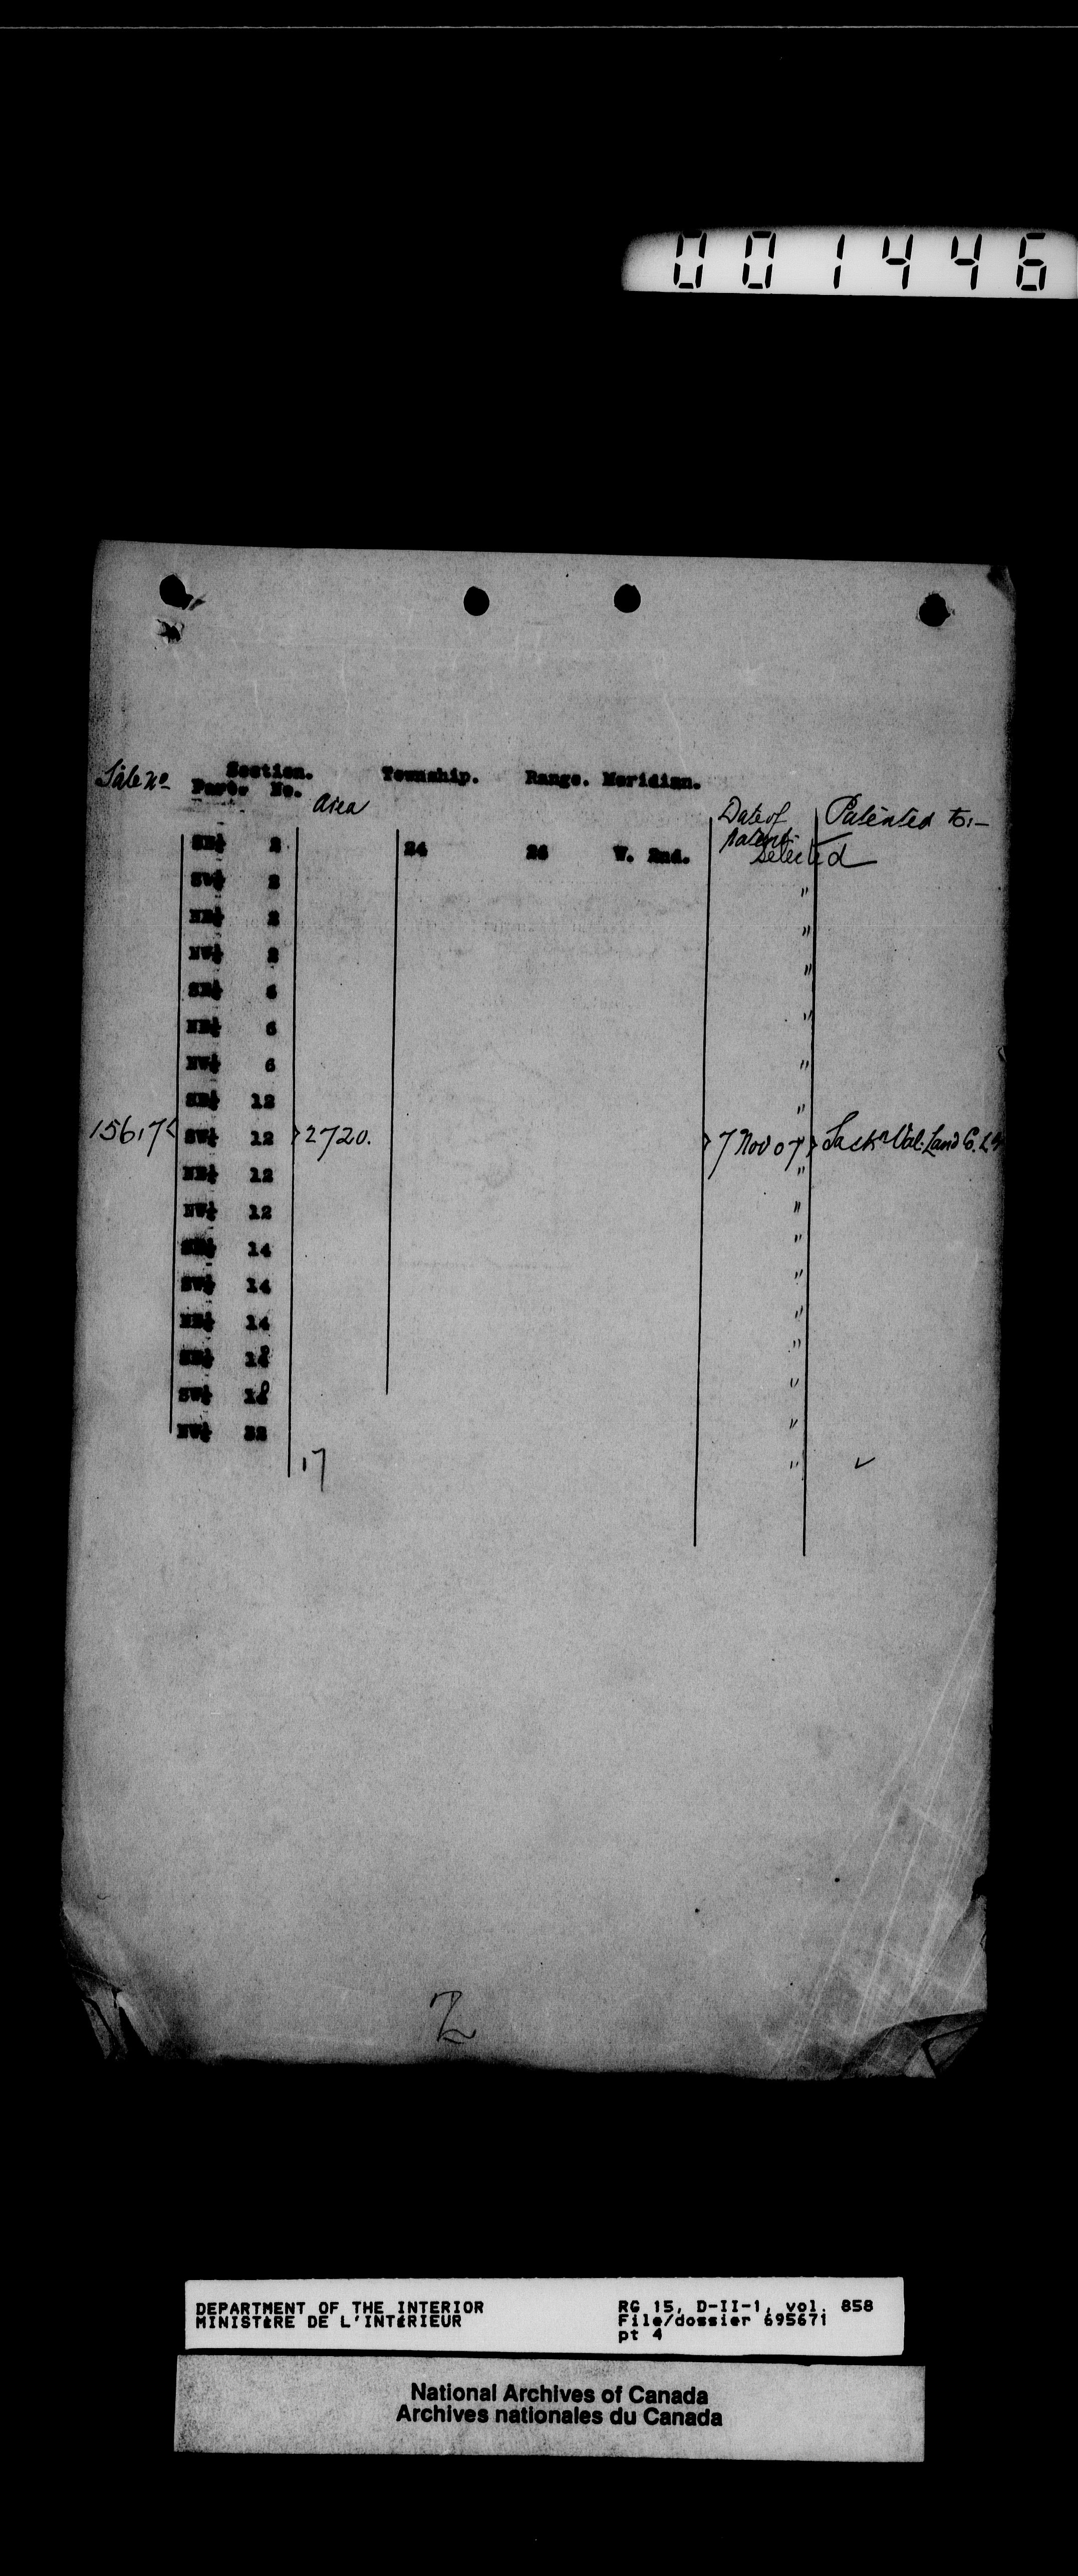 001446
Sale No Section. Township. Range. Meridian.
Part. No.
Area
Date of Patent Patented to:—
SE¼ 2 24 26 W. 2nd. Selected
SW¼ 2 "
NE¼ 2 "
NW¼ 2 "
SE¼ 6 "
NE¼ 6 "
NW¼ 6
SE¼ 12 "
15617 SW¼ 12 2720. 7 Nov 07 Sask Val. Land Co. Ld
NE¼ 12 "
NW¼ 12 "
SE¼ 14 "
SW¼ 14 "
NE¼ 14 "
SE¼ 18 "
SW¼ 18 "
NW¼ 22 "
17 " ✓
2
DEPARTMENT OF THE INTERIOR RG 15, D-II-1, vol. 858
MINISTÈRE DE L'INTÉRIEUR File/dossier 695671
pt 4
National Archives of Canada
Archives nationales du Canada